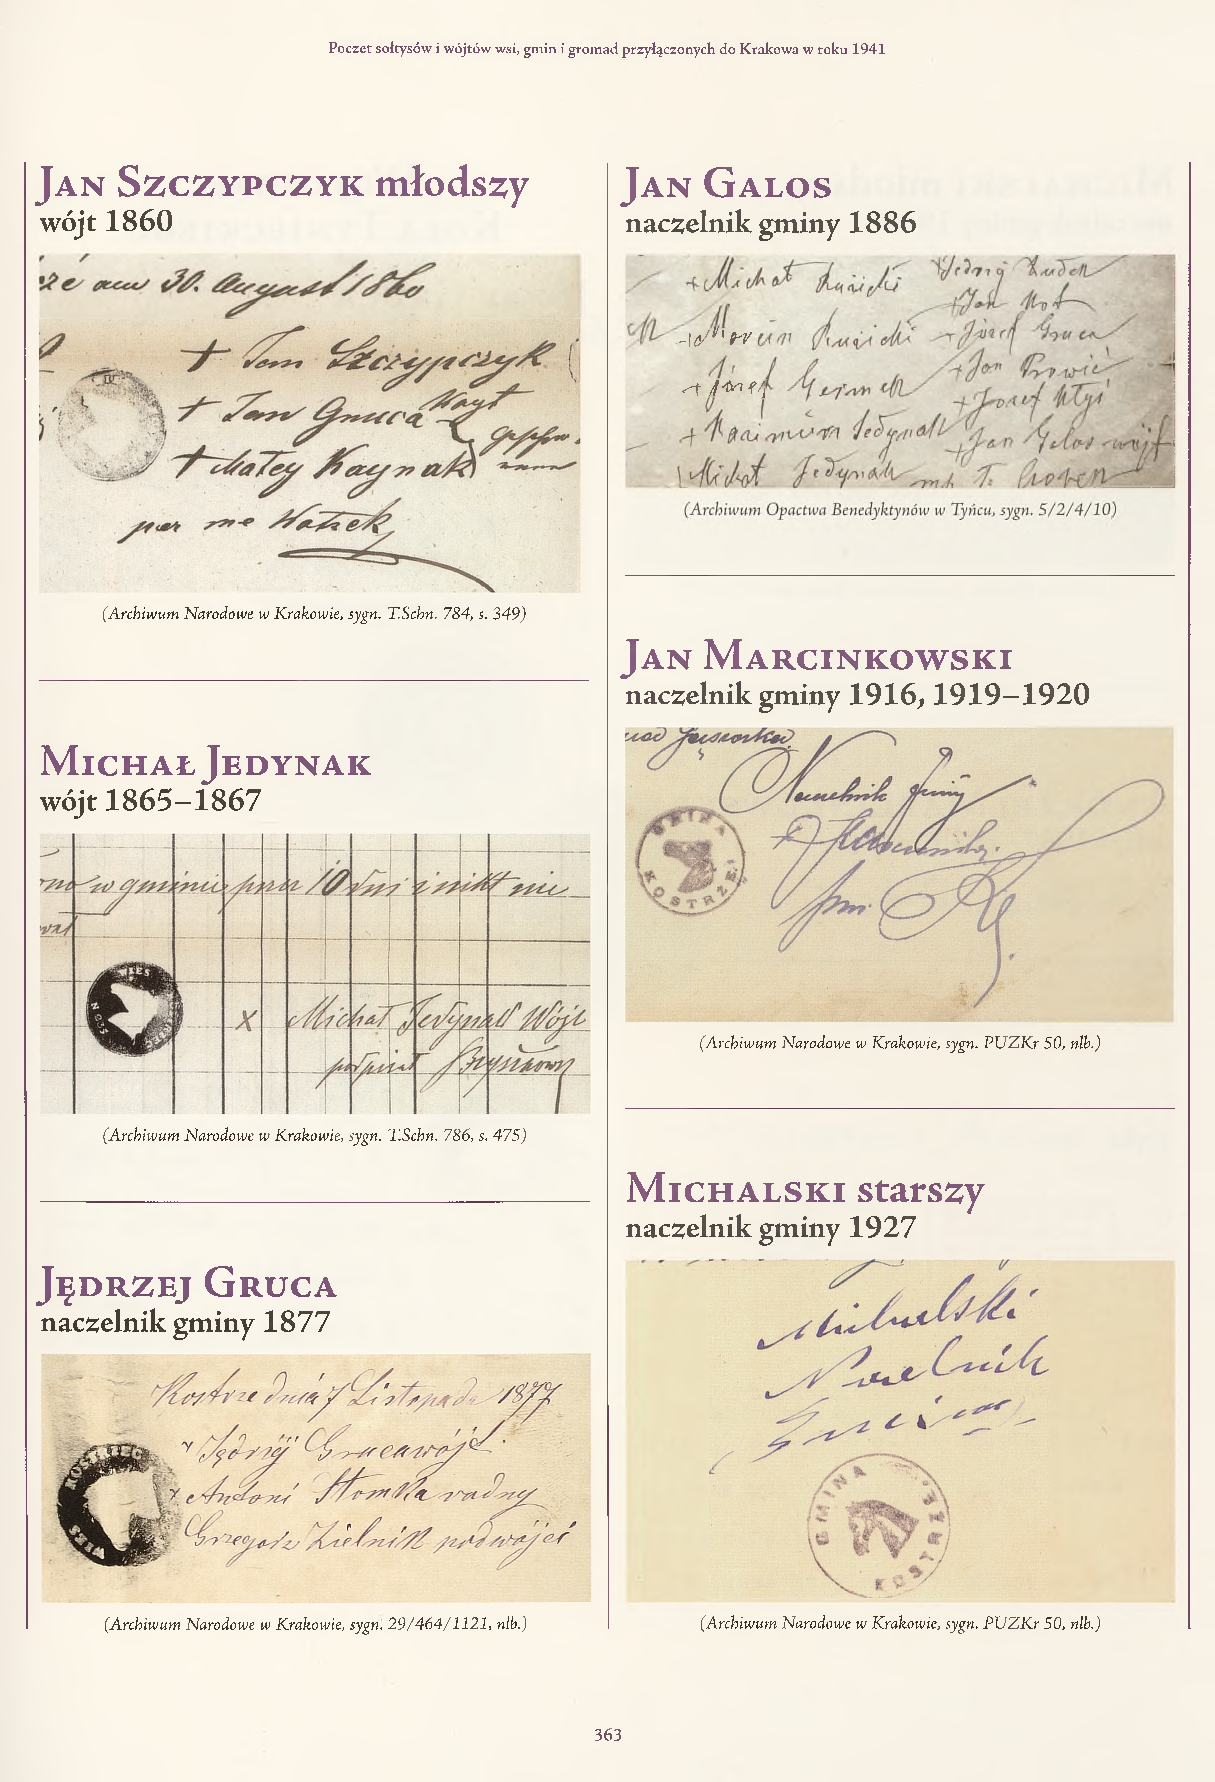 Poczet sołtysów i wójtów wsi, gmin i gromad przyłączonych do Krakowa w roku 1941
Jan Szczypczyk młodszy
wójt 1860
am 30. August 1860
+ Jan Szczypczyk
+ Jan Gruca Woyt
+ Matey Kaynak
per me Watzek
(Archiwum Narodowe w Krakowie, sygn. T.Schn. 784, s. 349)
Michał Jedynak
wójt 1865–1867
w gminie przez 10 dni i nikt nie
WIEŚ
x Michał Jedynak Wójt
podpisał
(Archiwum Narodowe w Krakowie, sygn. T.Schn. 786, s. 475)
Jędrzej Gruca
naczelnik gminy 1877
Kostrze dnia 7 Listopada 1877
+ Jędrzij Gruca wójt
+ Antoni Słomka radny
Grzegorz Zielnik podwójci
WIEŚ KOSTRZEC
(Archiwum Narodowe w Krakowie, sygn. 29/464/1121, nlb.)
Jan Galos
naczelnik gminy 1886
+ Michał Ruzicki
+ Marcin Ruzicki
+ Józef Germek
+ Kazimirz Jedynak
Michał Jedynak
+ Jędrzij Dudek
+ Jan Kot
+ Józef Gruca
+ Jan Prowić
+ Jozef Kłyś
Jan Galos wójt
(Archiwum Opactwa Benedyktynów w Tyńcu, sygn. 5/2/4/10)
Jan Marcinkowski
naczelnik gminy 1916, 1919–1920
Naczelnik Gminy
GMINA KOSTRZE
(Archiwum Narodowe w Krakowie, sygn. PUZKr 50, nlb.)
Michalski starszy
naczelnik gminy 1927
Michalski
Naczelnik
Gminy
GMINA KOSTRZE
(Archiwum Narodowe w Krakowie, sygn. PUZKr 50, nlb.)
363